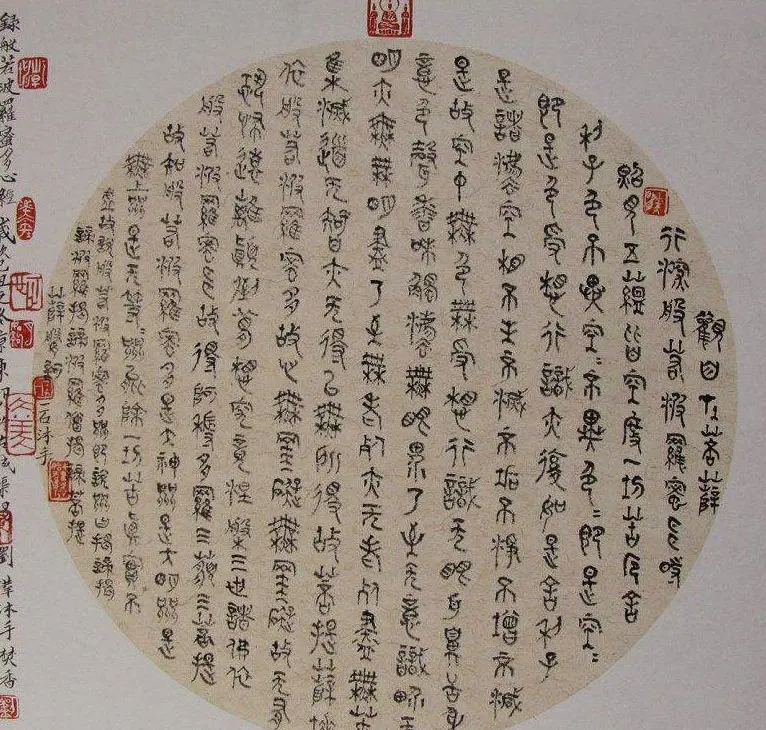 觀自在菩薩
行深般若波羅蜜多時
照見五蘊皆空度一切苦厄舍
利子色不異空〻不異色〻即是空〻
即是色受想行識亦復如是舍利子
是諸法空相不生不滅不垢不淨不增不減
是故空中無色無受想行識无眼耳鼻舌身
意色聲香味觸法無眼界乃至无意識界无
明亦無無明盡乃至無老死亦无老死盡無苦
集滅道无智亦无得以無所得故菩提薩埵
依般若波羅密多故心無罣礙無罣礙故无有
恐怖遠離顛倒夢想究竟涅槃三世諸佛依
般若波羅密多故得阿耨多羅三藐三菩提
故知般若波羅密多是大神咒是大明咒是
無上咒是无等〻咒能除一切苦真實不
虛故說般若波羅密多咒即說咒曰揭諦揭
諦波羅揭諦波羅僧揭諦菩提
薩婆訶
一石沐手
錄般若波羅蜜多心經 歲次 沐手焚香